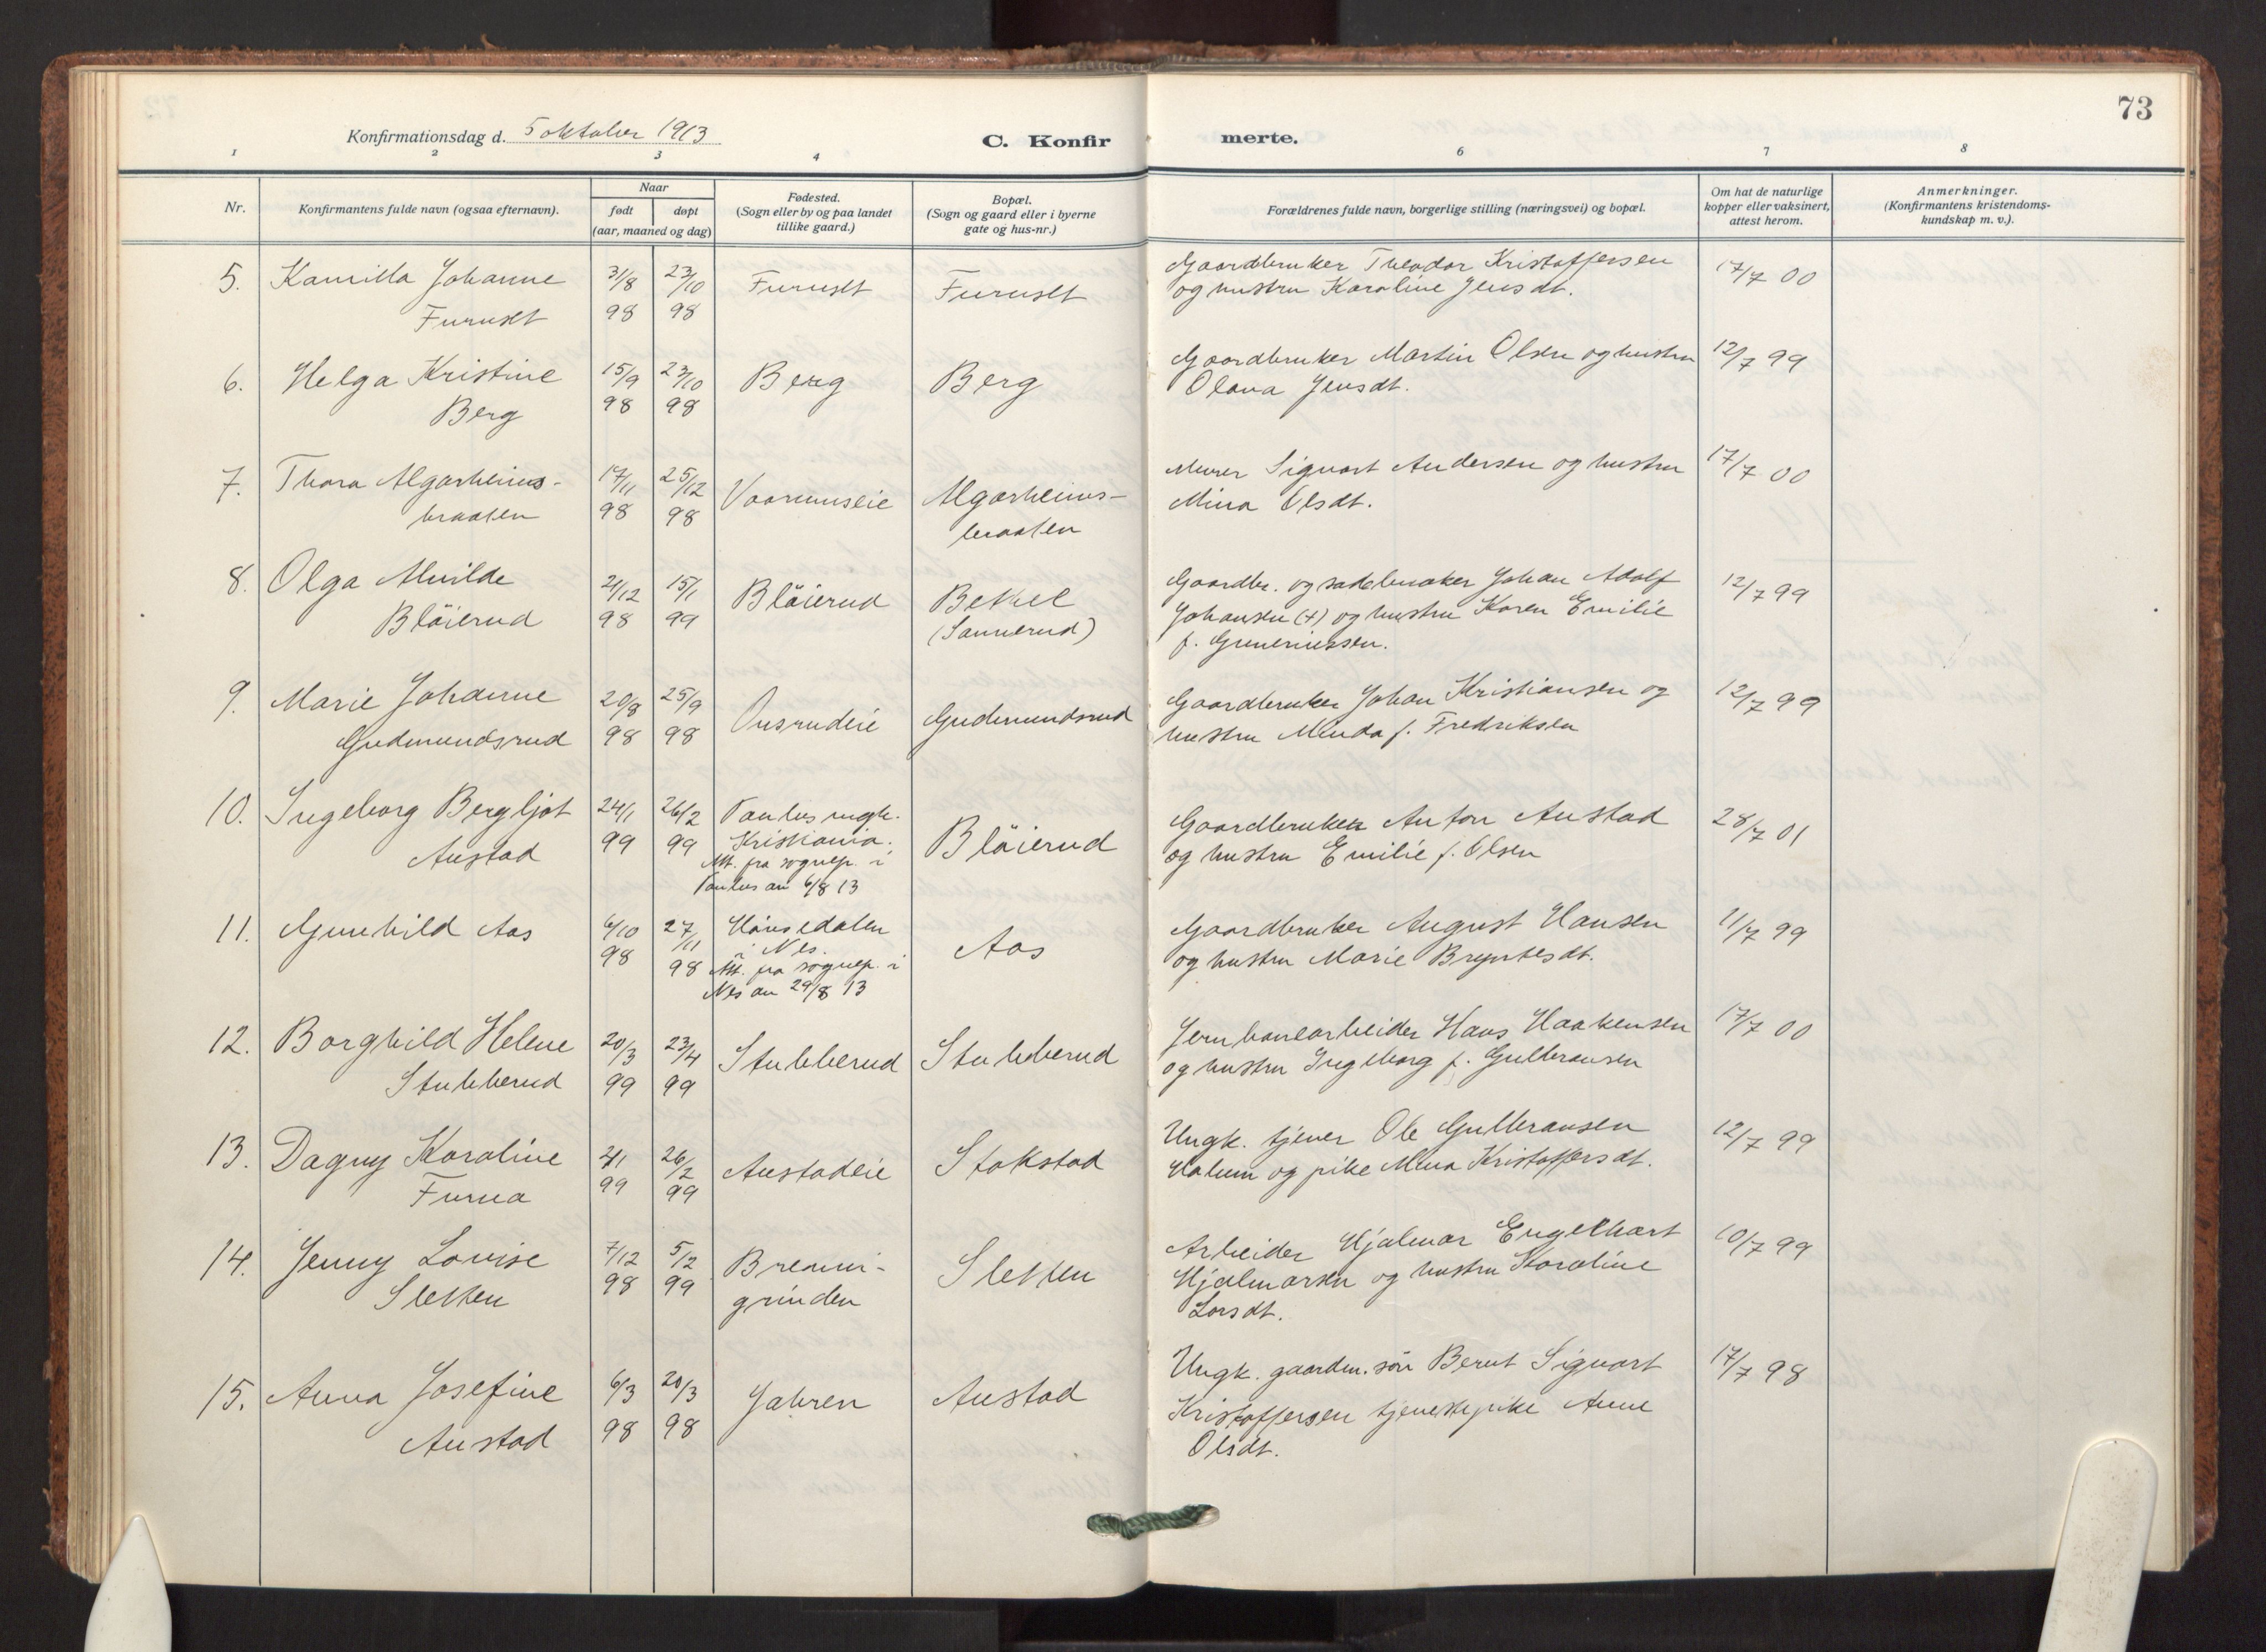 73
Konfirmationsdag d. 5 oktober 1913
C. Konfirmerte.
1 2 3 4 6 7 8
Nr.
Konfirmantens fulde navn (ogsaa efternavn).
Naar
født
døpt
(aar, maaned og dag)
Fødested.
(Sogn eller by og paa landet
tillike gaard.)
Bopæl.
(Sogn og gaard eller i byerne
gate og hus-nr.)
Forældrenes fulde navn, borgerlige stilling (næringsvei) og bopæl.
Om hat de naturlige
kopper eller vaksinert,
attest herom.
Anmerkninger.
(Konfirmantens kristendoms-
kundskap m. v.).
5. Kamilla Johanne
Furuset
31/8
98
23/10
98
Furuset
Furuset
Gaardbruker Theodor Kristoffersen
og hustru Karoline Jensdt.
17/7 00
6. Helga Kristine
Berg
15/9
98
23/10
98
Berg
Berg
Gaardbruker Martin Olsen og hustru
Olava Jensdt.
12/7 99
7. Thora Algarheims-
braaten
17/11
98
25/12
98
Vaarumseie
Algarheims-
braaten
Murer Sigvart Andersen og hustru
Mina Olsdt.
17/7 00
8. Olga Alvilde
Bläierud
21/12
98
15/1
99
Bläierud
Betel
(Sannerud)
Gaardbr. og sadelmaker Johan Adolf
Johansen (+) og hustru Karen Emilie
f. Guneriussen.
12/7 99
9. Marie Johanne
Gudmundsrud
20/8
98
25/9
98
Onsrudeie
Gudmundsrud
Gaardbruker Johan Kristiansen og
hustru Minda f. Fredriksen
12/7 99
10. Ingeborg Bergljot
Austad
24/1
99
26/2
99
Paulus mgh.
Kristiania.
Att. fra sognep. i
Paulus au 6/8 13
Bläierud
Gaardbruker Anton Austad
og hustru Emilie f. Olsen
28/7 01
11. Gunhild Aas
6/10
98
27/11
98
i Nes.
Att. fra sognep. i
Nes au 29/8 13
Aas
Gaardbruker August Hansen
og hustru Marie Bryntesdt.
11/7 99
12. Borghild Helene
Stubberud
20/3
99
23/4
99
Stubberud
Stubberud
Jernbanearbeider Hans Haakensen
og hustru Ingeborg f. Gulbransen
17/7 00
13. Dagny Karoline
Furua
4/1
99
26/2
99
Austadeie
Stokstad
Ungk. tjener Ole Gulbransen
Holum og pike Mina Kristoffersdt.
12/7 99
14. Jenny Lovise
Sletten
7/12
98
5/2
99
Bremi-
grinden
Sletten
Arbeider Hjalmar Engelhart
Hjalmarsen og hustru Karoline
Larsdt.
10/7 99
15. Anna Josefine
Austad
6/3
98
20/3
98
Jahren
Austad
Ungk. gaardm. sön Bernt Sigvart
Kristoffersen tjenestepike Anne
Olsdt.
17/7 98